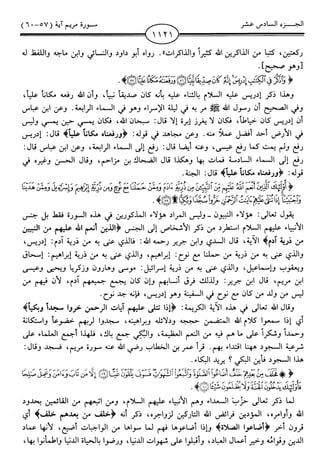 الجـــزء السادس عشر
سـورة مريم آية (٥٧-٦٠)
١١٢١
ركعتين، كتبا من الذاكرين الله كثيراً والذاكرات». رواه أبو داود والنسائي وابن ماجه واللفظ له
[وهو صحيح].
﴿ وَاذْكُرْ فِي الْكِتَابِ إِدْرِيسَ إِنَّهُ كَانَ صِدِّيقًا نَبِيًّا ۝ وَرَفَعْنَاهُ مَكَانًا عَلِيًّا ۝ ﴾.
وهذا ذكر إدريس عليه السلام بالثناء عليه بأنه كان صديقاً نبياً، وأن الله رفعه مكاناً علياً،
وفي الصحيح أن رسول الله ﷺ مر به في ليلة الإسراء وهو في السماء الرابعة. وعن ابن عباس
أن إدريس كان خياطاً، فكان لا يغرز إبرة إلا قال: سبحان الله، فكان يمسي حين يمسي وليس
في الأرض أحد أفضل عملاً منه. وعن مجاهد في قوله: ﴿ورفعناه مكاناً علياً﴾ قال: إدريس
رفع ولم يمت كما رفع عيسى، وعنه أيضا قال: رفع إلى السماء الرابعة، وعن ابن عباس قال:
رفع إلى السماء السادسة فمات بها وهكذا قال الضحاك بن مزاحم، وقال الحسن وغيره في
قوله: ﴿ورفعناه مكاناً علياً﴾ قال: الجنة.
﴿ أُولَٰئِكَ الَّذِينَ أَنْعَمَ اللَّهُ عَلَيْهِمْ مِنَ النَّبِيِّينَ مِنْ ذُرِّيَّةِ آدَمَ وَمِمَّنْ حَمَلْنَا مَعَ نُوحٍ وَمِنْ ذُرِّيَّةِ إِبْرَاهِيمَ وَإِسْرَائِيلَ وَمِمَّنْ هَدَيْنَا
وَاجْتَبَيْنَا إِذَا تُتْلَىٰ عَلَيْهِمْ آيَاتُ الرَّحْمَٰنِ خَرُّوا سُجَّدًا وَبُكِيًّا ۝ ﴾.
يقول تعالى: هؤلاء النبيون ـ وليس المراد هؤلاء المذكورين في هذه السورة فقط بل جنس
الأنبياء عليهم السلام استطرد من ذكر الأشخاص إلى الجنس ﴿الذين أنعم الله عليهم من النبيين
من ذرية آدم﴾ الآية، قال السدي وابن جرير رحمه الله: فالذي عنى به من ذرية آدم: إدريس،
والذي عنى به من ذرية من حملنا مع نوح: إبراهيم، والذي عنى به من ذرية إبراهيم: إسحاق
ويعقوب وإسماعيل، والذي عنى به من ذرية إسرائيل: موسى وهارون وزكريا ويحيى وعيسى
ابن مريم، قال ابن جرير: ولذلك فرق أنسابهم وإن كان يجمع جميعهم آدم، لأن فيهم من
ليس من ولد من كان مع نوح في السفينة وهو إدريس، فإنه جد نوح.
وقال الله تعالى في هذه الآية الكريمة: ﴿إذا تتلى عليهم آيات الرحمن خروا سجداً وبكياً﴾
أي إذا سمعوا كلام الله المتضمن حججه ودلائله وبراهينه، سجدوا لربهم خضوعاً واستكانة
وحمداً وشكراً على ما هم فيه من النعم العظيمة، والبُكي جمع باك، فلهذا أجمع العلماء على
شرعية السجود هٰهنا اقتداء بهم. قرأ عمر بن الخطاب رضي الله عنه سورة مريم، فسجد وقال:
هذا السجود فأين البكي ؟ يريد البكاء.
﴿ فَخَلَفَ مِنْ بَعْدِهِمْ خَلْفٌ أَضَاعُوا الصَّلَاةَ وَاتَّبَعُوا الشَّهَوَاتِ فَسَوْفَ يَلْقَوْنَ غَيًّا ۝ إِلَّا مَنْ تَابَ وَآمَنَ وَعَمِلَ صَالِحًا
فَأُولَٰئِكَ يَدْخُلُونَ الْجَنَّةَ وَلَا يُظْلَمُونَ شَيْئًا ۝ ﴾.
لما ذكر تعالى حزْبَ السعداء وهم الأنبياء عليهم السلام، ومن اتبعهم من القائمين بحدود
الله وأوامره، المؤدين فرائض الله التاركين لزواجره، ذكر أنه ﴿خلف من بعدهم خلف﴾ أي
قرون أخر ﴿أضاعوا الصلاة﴾ وإذا أضاعوها فهم لما سواها من الواجبات أضيع، لأنها عماد
الدين وقوامُه وخير أعمال العباد، وأقبلوا على شهوات الدنيا، ورضوا بالحياة الدنيا واطمأنوا بها،